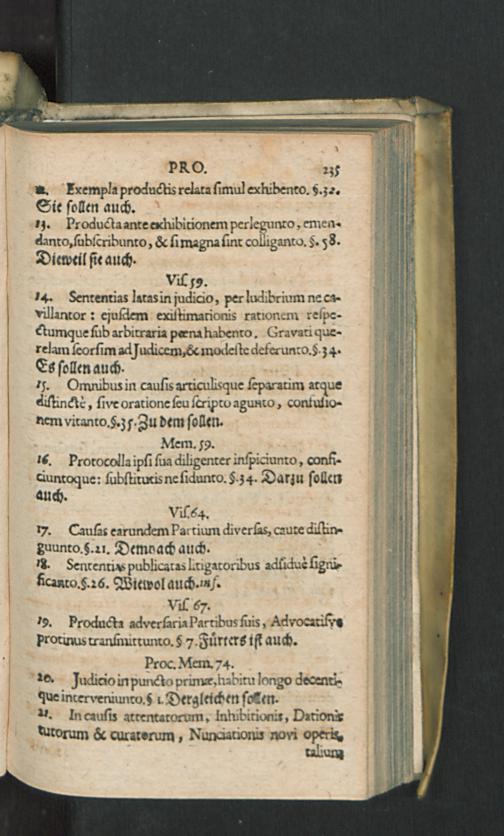 PRO. 235
12. Exempla productis relata simul exhibento. §.32.
Sie sollen auch.
13. Producta ante exhibitionem perlegunto, emen-
danto, subscribunto, & si magna sint colliganto. §. 58.
Dieweil sie auch.
Vis. 59.
14. Sententias latas in judicio, per ludibrium ne ca-
villantor : ejusdem existimationis rationem respe-
ctumque sub arbitraria pœna habento. Gravati que-
relam seorsim ad Judicem, & modeste deferunto. §.34.
Es sollen auch.
15. Omnibus in causis articulisque separatim atque
distinctè, sive oratione seu scripto agunto, confusio-
nem vitanto. §.35. Zu dem sollen.
Mem. 59.
16. Protocolla ipsi sua diligenter inspiciunto, confi-
ciuntoque : substitutis ne fidunto. §.34. Darzu sollen
auch.
Vis. 64.
17. Causas earundem Partium diversas, caute distin-
guunto. §.21. Demnach auch.
18. Sententias publicatas litigatoribus adsiduè signi-
ficanto. §.26. Wiewol auch. inf.
Vis. 67.
19. Producta adversaria Partibus suis, Advocatisve
protinus transmittunto. § 7. Fürters ist auch.
Proc. Mem. 74.
20. Judicio in puncto primæ, habitu longo decenti-
que interveniunto. § 1. Dergleichen sollen.
21. In causis attentatorum, Inhibitionis, Dationis
tutorum & curatorum, Nunciationis novi operis,
talium